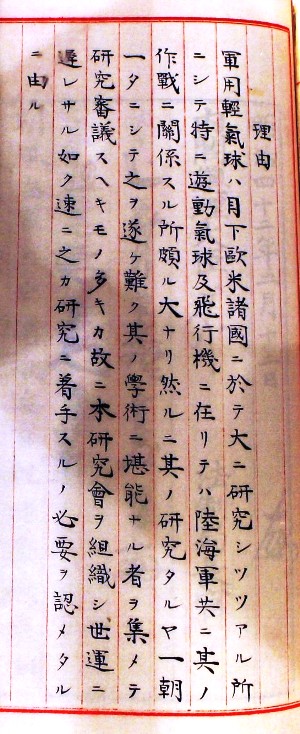 理由
軍用輕氣球ハ目下歐米諸國ニ於テ大ニ研究シツツアル所
ニシテ特ニ遊動氣球及飛行機ニ在リテハ陸海軍共ニ其ノ
作戰ニ關係スル所頗ル大ナリ然ルニ其ノ研究タルヤ一朝
一タニシテ之ヲ遂ケ難ク其ノ學術ニ堪能ナル者ヲ集メテ
研究審議スヘキモノ多キカ故ニ本研究會ヲ組織シ世運ニ
遲レサル如ク速ニ之カ研究ニ着手スルノ必要ヲ認メタル
ニ由ル